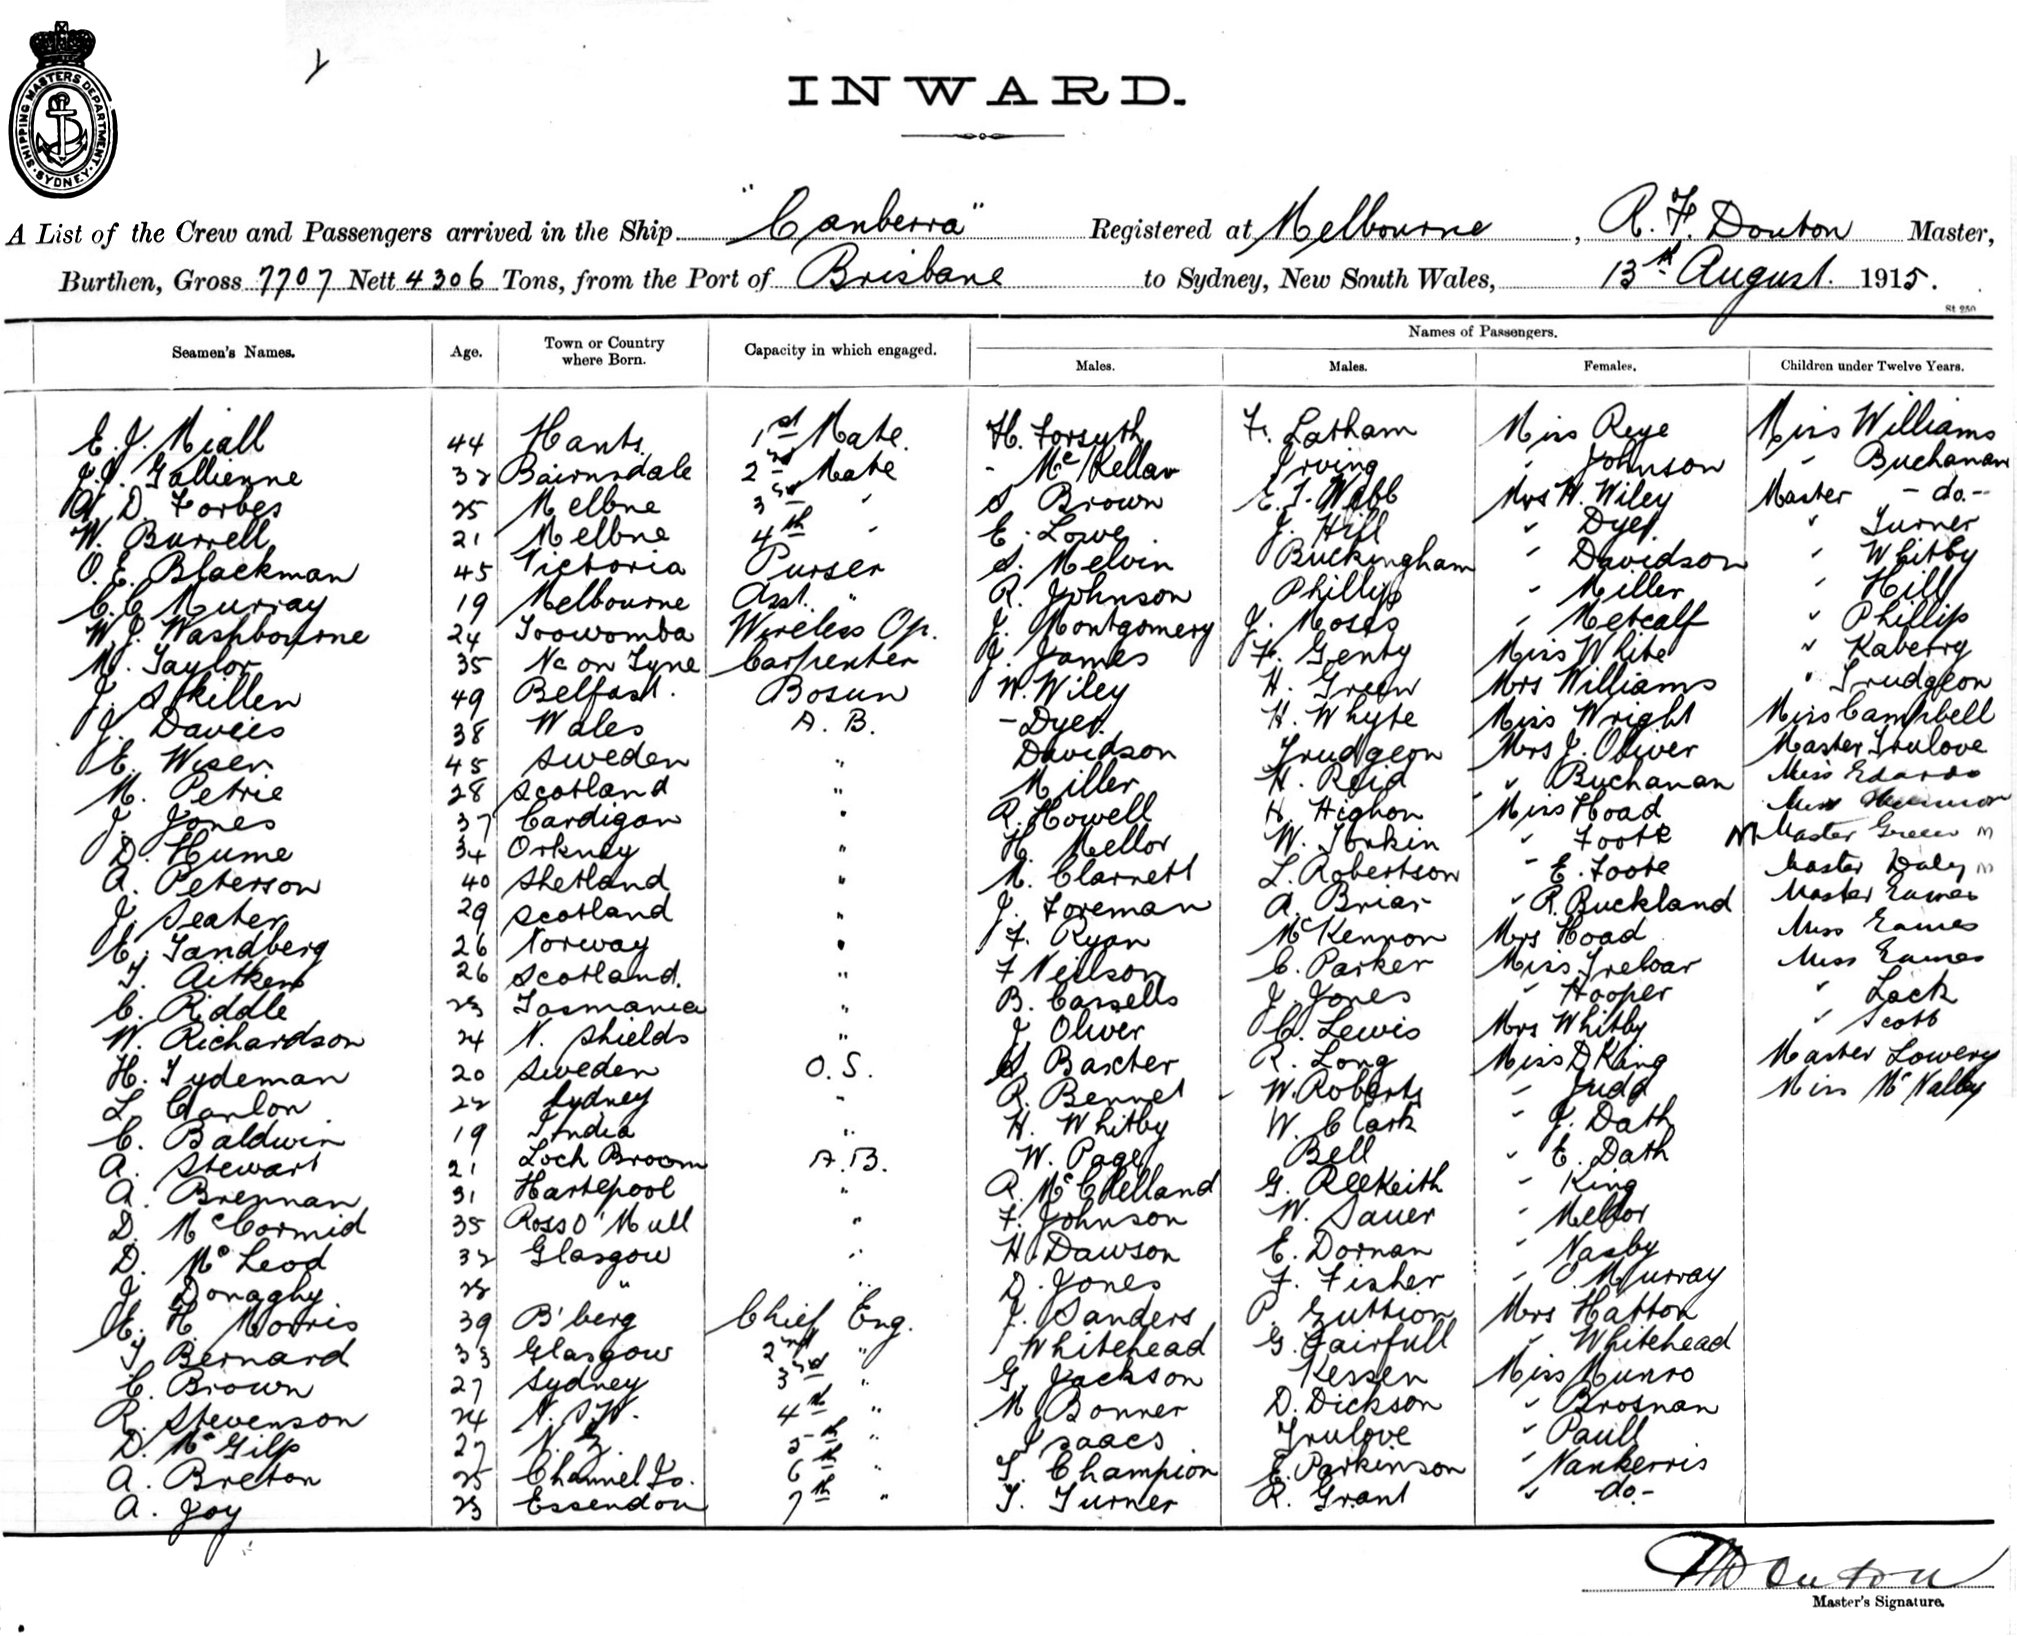 SHIPPING MASTERS DEPARTMENT
SYDNEY
INWARD.
A List of the Crew and Passengers arrived in the Ship "Canberra" Registered at Melbourne, R. F. Douton Master,
Burthen, Gross 7707 Nett 4306 Tons, from the Port of Brisbane to Sydney, New South Wales, 13th August. 1915.
St 250
Names of Passengers.
Seamen's Names. Age. Town or Country where Born. Capacity in which engaged. Males. Males. Females. Children under Twelve Years.
E. J. Niall 44 Hants. 1st Mate. H. Forsyth F. Latham Miss Reye Miss Williams
J. J. Gallienne 32 Bairnsdale 2nd Mate - McKellar Irving " Johnson " Buchanan
D. Forbes 25 Melbne 3rd " S Brown E. J. Webb Mrs W. Wiley Master - do. -
W. Burrell 21 Melbne 4th " E. Lowe J. Hill " Dyer " Turner
O. E. Blackman 45 Victoria Purser S. Melvin Buckingham " Davidson " Whitby
C. C Murray 19 Melbourne Asst. " R. Johnson Phillips " Miller " Hill
W. J. Washbourne 24 Toowomba Wireless Op. J. Montgomery J. Moses " Metcalf " Phillip
M. Taylor 35 Nc on Tyne Carpenter J. James F. Genty Miss White " Kaberry
J. Skillen 49 Belfast. Bosun W. Wiley H. Green Mrs Williams " Trudgeon
J. Davies 38 Wales A. B. - Dyer H. Whyte Miss Wright Miss Campbell
E. Wiser 45 Sweden " Davidson Trudgeon Mrs J. Oliver Master Trulove
M. Petrie 28 Scotland " Miller H. Reid " Buchanan Miss
J. Jones 37 Cardigan " R. Howell H. Highon Miss Hoad Miss
D. Hume 34 Orkney " H. Mellor W. Tonkin " Foote Master Green
A. Peterson 40 Shetland " M. Clarnett L. Robertson " E. Foote Master Daly
J. Seater 29 Scotland " J. Foreman A. Briar " R. Buckland Master Eames
E. Sandberg 26 Norway " F. Ryan McKennon Mrs Hoad Miss Eames
T. Aitken 26 Scotland. " F Neilson C. Parker Miss Treloar Miss Eames
C. Riddle 23 Tasmania " B. Cassells J. Jones " Hooper " Lock
W. Richardson 24 N. Shields " J Oliver C. Lewis Mrs Whitby " Scott
H. Tydeman 20 Sweden O. S. S. Baxter R. Long Miss D King Master Lowery
L. Carlon 22 Sydney " R. Bennet W. Roberts " Judd Miss McNally
C. Baldwin 19 India " H. Whitby W. Clark " J. Dath
A. Stewart 21 Loch Broom A. B. W. Page Bell " E. Dath
A. Brennan 31 Hartepool " R. McClelland G. Reekeith " King
D. McCormid 35 Ross O' Mull " F. Johnson W. Sauer " Mellor
D. McLeod 32 Glasgow " H. Dawson E. Dornan " Nasby
J. Donaghy 28 " " D. Jones F. Fisher " O. Murray
E. H. Morris 39 B'berg Chief Eng. J. Sanders P. Guttion Mrs Hatton
T Bernard 33 Glasgow 2nd " Whitehead G. Fairfull " Whitehead
C. Brown 27 Sydney 3rd " G. Jackson Kessen Miss Munro
R. Stevenson 24 N. S. W. 4th " M Bonner D. Dickson " Brosnan
D. McGilp 27 N. Z. 5th " Isaacs Trulove " Paull
A. Breton 25 Channel Is. 6th " T. Champion E. Parkinson " Nankerris
A. Joy 23 Essendon 7th " T. Turner R. Grant " - do. -
Douton
Master's Signature.